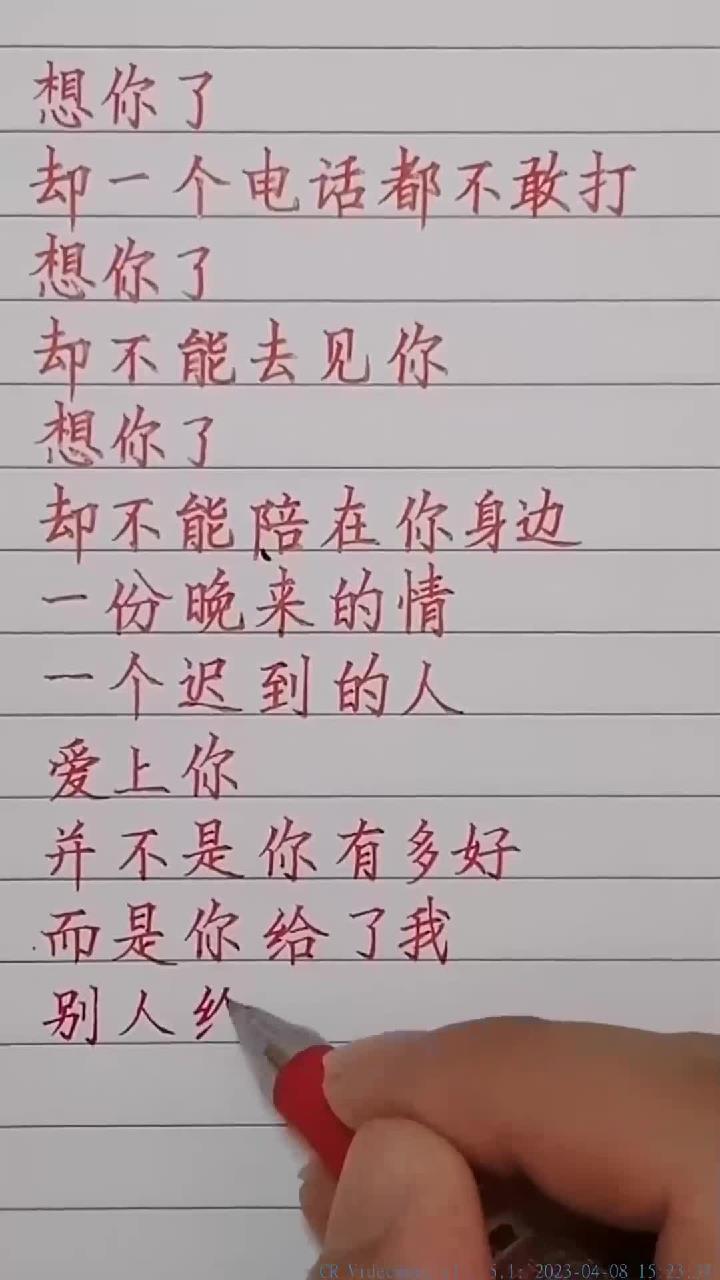 想你了
却一个电话都不敢打
想你了
却不能去见你
想你了
却不能陪在你身边
一份晚来的情
一个迟到的人
爱上你
并不是你有多好
而是你给了我
别人
2023-04-08